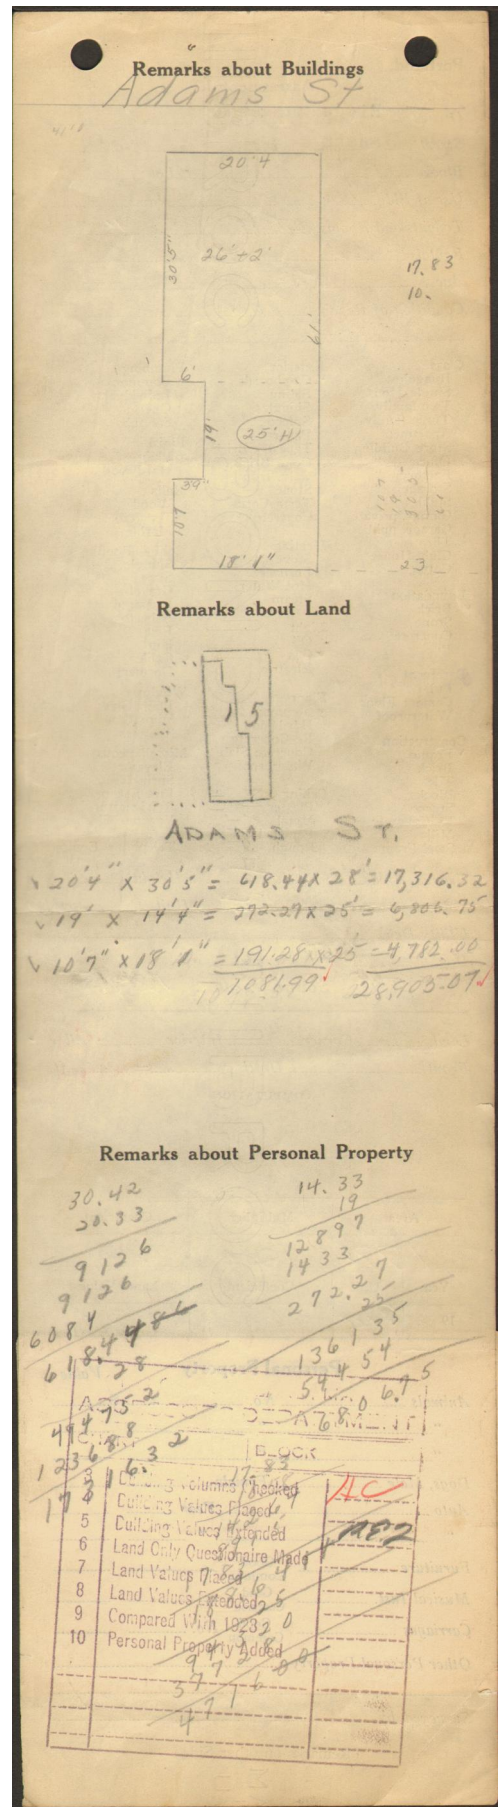 Remarks about Buildings
Adams St
20'4
30'5"
26'+2'
17.83
10.
61'
6'
19'
25'H
39"
10'7
18'1"
23
Remarks about Land
15
ADAMS ST.
20'4" X 30'5" = 618.44 X 28' = 17,316.32
19' X 14'4" = 272.27 X 25' = 6,806.75
10'7" X 18'1" = 191.28 X 25' = 4,782.00
1081.99 28,905.07
Remarks about Personal Property
30.42
20.33
9126
9126
6084
618.4486
28
494752
123688
17316.32
14.33
19
12897
1433
272.27
25
136135
54454
6806.75
DEPARTMENT
BLOCK
17.83
3 Building Volumes Checked AC
4 Building Values Placed
5 Building Values Extended
6 Land Only Questionaire Made
7 Land Values Placed
8 Land Values Extended
9 Compared With 1923
10 Personal Property Added